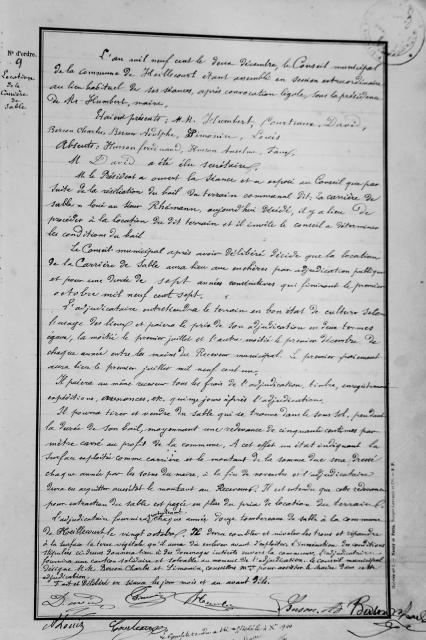 N° d'ordre.
9
Location
de la
Carrière
de
Sable
L'an mil neuf cent le deux décembre, le Conseil municipal
de la commune de Heillecourt étant assemblé en session extraordinaire
au lieu habituel de ses séances, après convocation légale, sous la présidence
de Mr Humbert, maire.
Étaient présents: M.M. Humbert, Courteaux, David,
Berson Charles, Berson Adolphe, Simonin, Louis
Absents: Husson Ferdinand, Husson Anselme,
M David a été élu secrétaire.
M. le Président a ouvert la séance et a exposé au Conseil que par
suite de la résiliation du bail du terrain communal dit: la carrière de
sable, loué au sieur Rhémann, aujourd'hui décédé, il y a lieu de
procéder à la location du dit terrain et il invite le conseil à déterminer
les conditions du bail.
Le Conseil municipal après avoir délibéré décide que la location
de la Carrière de Sable aura lieu aux enchères par adjudication publique
et pour une durée de sept années consécutives qui finiront le premier
octobre mil neuf cent sept.
L'adjudicataire entretiendra le terrain en bon état de culture selon
l'usage des lieux et paiera le prix de son adjudication en deux termes
égaux, la moitié le premier juillet et l'autre moitié le premier décembre de
chaque année entre les mains du Receveur municipal. Le premier paiement
aura lieu le premier juillet mil neuf cent un.
Il paiera au même receveur tous les frais de l'adjudication, timbre, enregistrement
expéditions, annonces, etc. quinze jours après l'adjudication.
Il pourra tirer et vendre du sable qui se trouve dans le sous sol, pendant
la durée de son bail, moyennant une redevance de cinquante centimes par
mètre carré au profit de la commune. A cet effet un état indiquant la
surface exploitée comme carrière et le montant de la somme due sera dressé
chaque année par les soins du maire, à la fin de novembre et l'adjudicataire
devra en acquitter aussitôt le montant au Receveur. Il est entendu que cette redevance
pour extraction de sable est payée en plus du prix de location du terrain.
L'adjudicataire fournira chaque année douze tombereaux de sable à la commune
de Heillecourt, le vingt octobre. Il devra combler et niveler les trous et répandre
à la surface la terre végétale
fournira une caution solidaire et solvable au moment de l'adjudication. Le conseil municipal
désigne M.M. Berson Charles et Simonin, conseillers pour assister le maire dans cette
adjudication.
Fait et Délibéré en séance les jour mois et an avant dits.
David Humbert
Courteaux